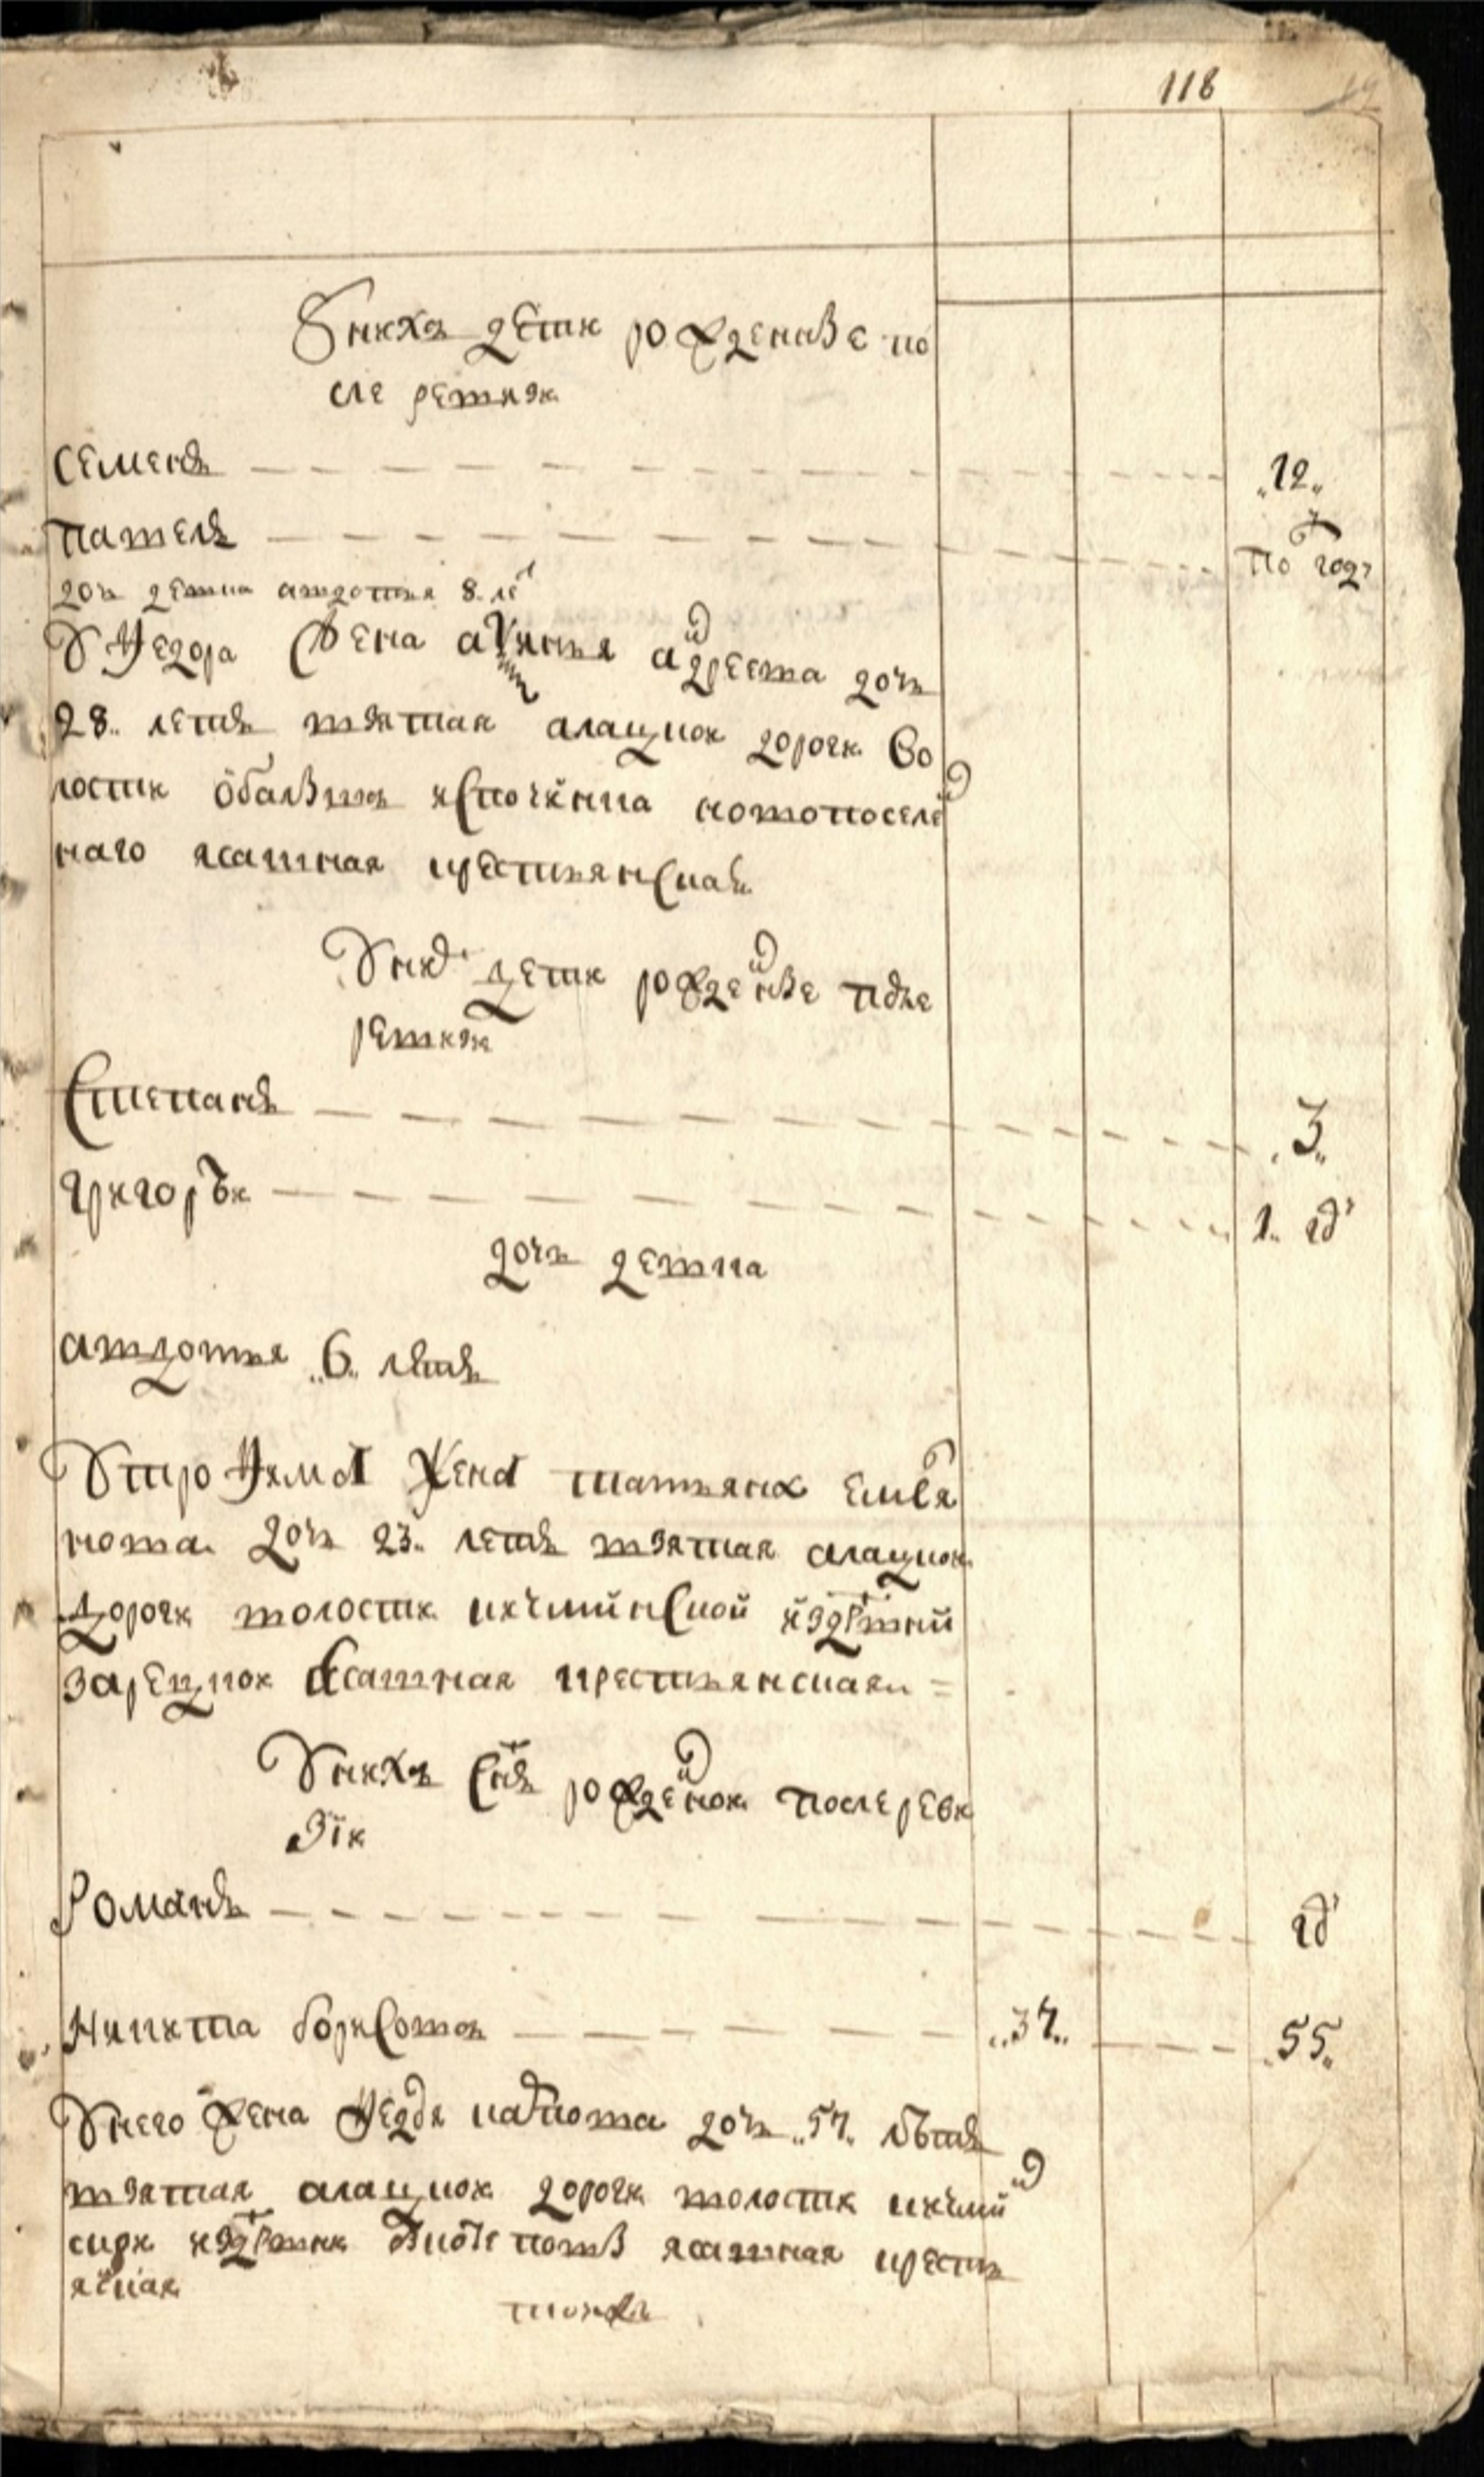 118
У них дети рожденые по
сле ревизи
Семенъ 12
Павелъ по год
дочь девка авдотья 8 ле
У Федора жена аксинья андреева дочь
28 летъ взятая алацкой дороги во
лости
наго ясашная крестьянская
У них дети рожденые после
ревизи
Степанъ 3
григорей 1 год
дочь девка
авдотья 6 летъ
У трофима жена татьяна емелья
нова дочь 23 летъ взятая алацкой
дороги волости кичминской из дрвни
зарецкой ясашная крестьянская
У них сынъ рожденой после реви
зіи
Романъ год
Никита борисовъ 37 55
У него жена Федося дочь 57 летъ
взятая алацкой дороги волости кичмин
ской из дрвни ясашная кресть
янская